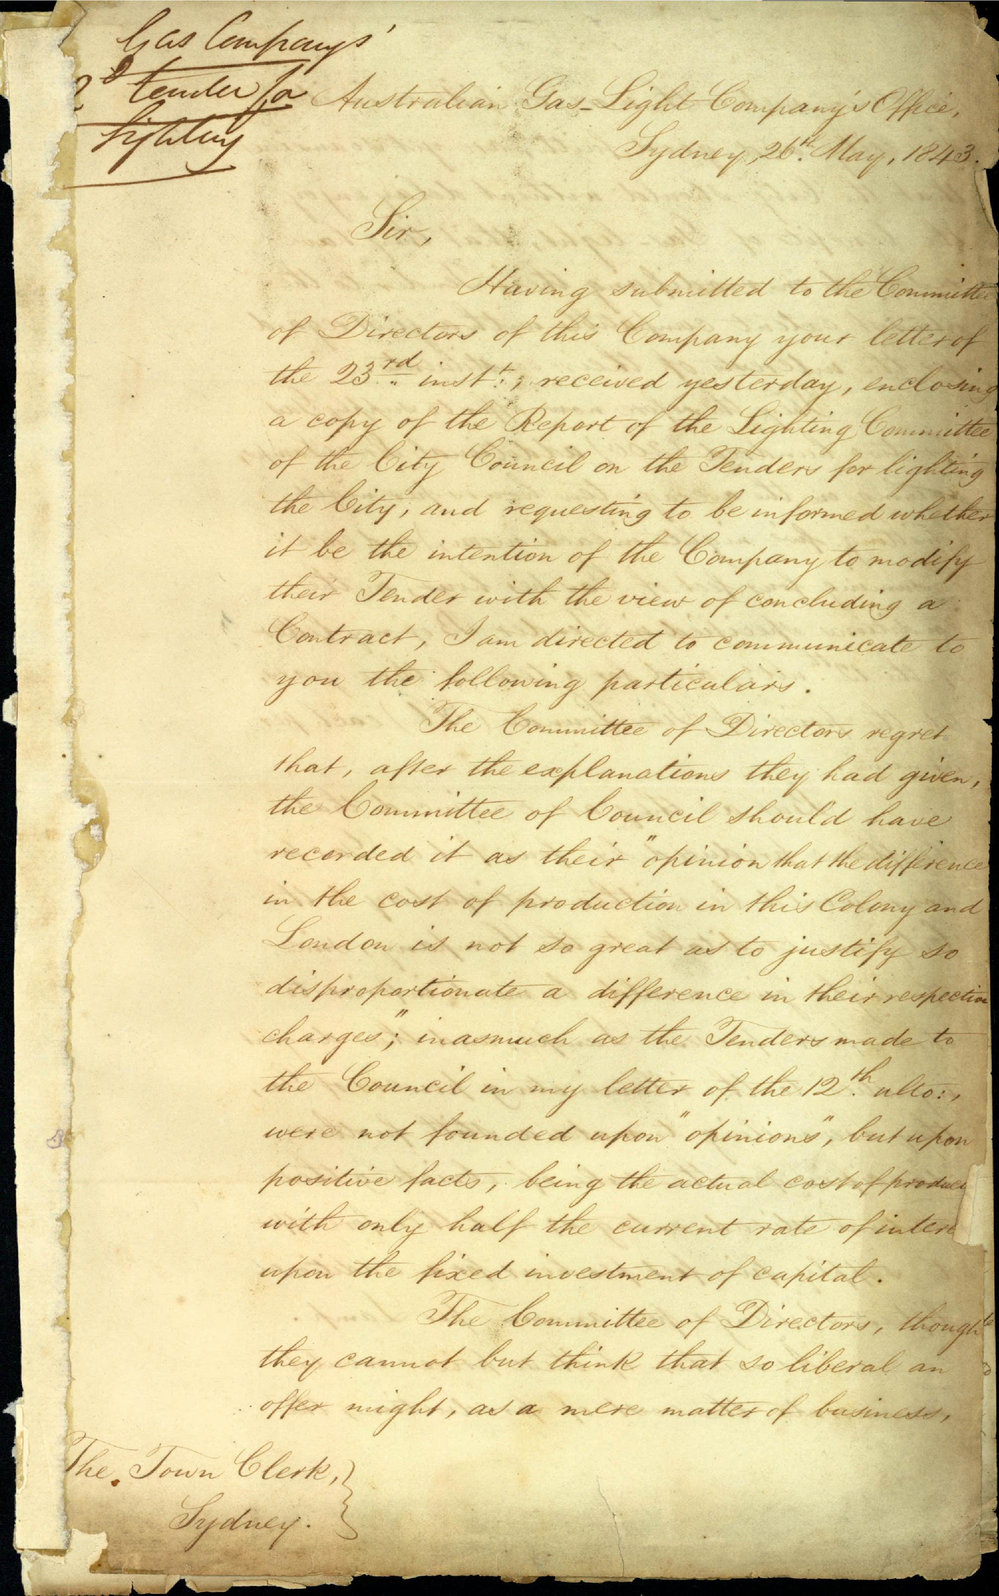 Gas Companys'
2d tender for
Lighting
Australian Gas-Light Company's Office,
Sydney, 26th May, 1843.
Sir,
Having submitted to the Committee
of Directors of this Company your letter of
the 23rd inst:; received yesterday, enclosing
a copy of the Report of the Lighting Committee
of the City Council on the Tenders for lighting
the City, and requesting to be informed whether
it be the intention of the Company to modify
their Tender with the view of concluding a
Contract, I am directed to communicate to
you the following particulars.
The Committee of Directors regret
that, after the explanations they had given,
the Committee of Council should have
recorded it as their "opinion that the difference
in the cost of production in this Colony and
London is not so great as to justify so
disproportionate a difference in their respective
charges"; inasmuch as the Tenders made to
the Council in my letter of the 12th ulto:,
were not founded upon "opinions", but upon
positive facts, being the actual cost of produc
with only half the current rate of intere
upon the fixed investment of capital.
The Committee of Directors, though
they cannot but think that so liberal an
offer might, as a mere matter of business,
The Town Clerk,
Sydney.